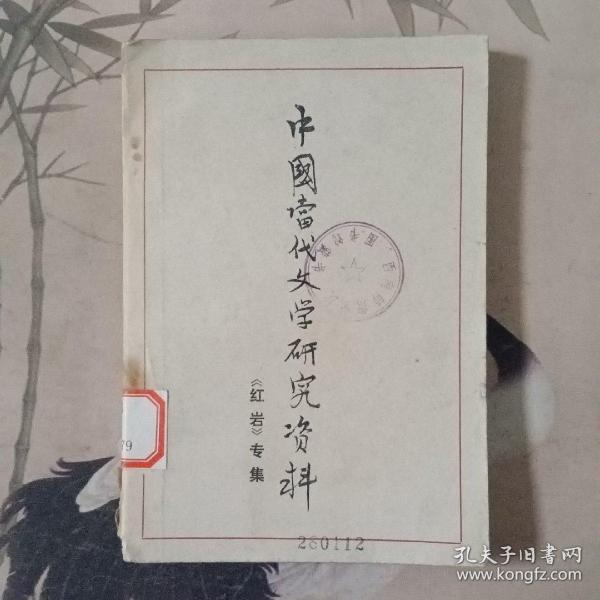 中國當代文学研究资料
《红岩》专集
79
260112
孔夫子旧书网
www.kongfz.com